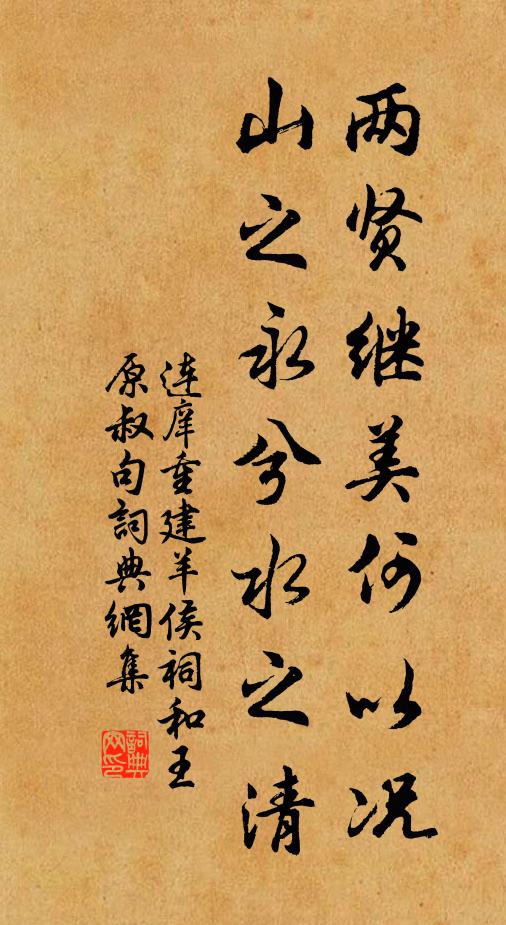 两贤继美何以况
山之永兮水之清
连庠重建羊侯祠和王
原叔句詞典網集
詞典網印